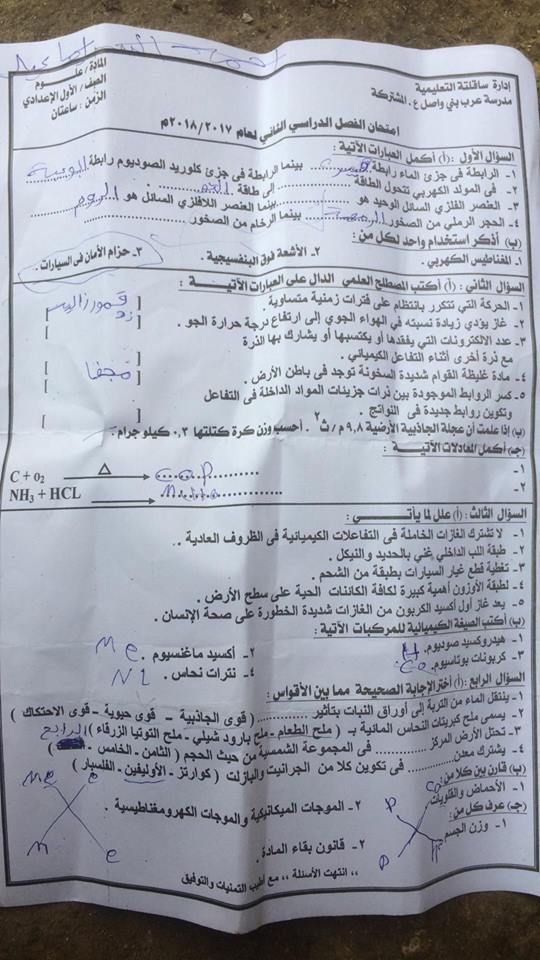 إدارة ساقلتة التعليمية
مدرسة عرب بني واصل ع. المشتركة
المادة/ علوم
الصف/ الأول الإعدادي
الزمن: ساعتان
امتحان الفصل الدراسي الثاني لعام ٢٠١٨/٢٠١٧م
السؤال الأول: (أ) أكمل العبارات الآتية:
١- الرابطة فى جزئ الماء رابطة ............ بينما الرابطة فى جزئ كلوريد الصوديوم رابطة ............
٢- فى المولد الكهربي تتحول الطاقة ............ إلى طاقة ............
٣- العنصر الفلزي السائل الوحيد هو ............ بينما العنصر اللافلزي السائل هو البروم
٤- الحجر الرملي من الصخور ............ بينما الرخام من الصخور ............
(ب) أذكر استخدام واحد لكل من:
١- المغناطيس الكهربي. ٢- الأشعة فوق البنفسيجية. ٣- حزام الأمان فى السيارات.
السؤال الثاني: (أ) أكتب المصطلح العلمي الدال على العبارات الآتية:
١- الحركة التي تتكرر بانتظام على فترات زمنية متساوية. [ ]
٢- غاز يؤدي زيادة نسبته في الهواء الجوي إلى ارتفاع درجة حرارة الجو. [ ]
٣- عدد الالكترونات التي يفقدها أو يكتسبها أو يشارك بها الذرة
مع ذرة أخرى أثناء التفاعل الكيميائي. [ ]
٤- مادة غليظة القوام شديدة السخونة توجد فى باطن الأرض. [ مجفا ]
٥- كسر الروابط الموجودة بين ذرات جزيئات المواد الداخلة فى التفاعل
وتكوين روابط جديدة فى النواتج. [ ]
(ب) إذا علمت أن عجلة الجاذبية الأرضية ٩,٨ م/ث٢. أحسب وزن كرة كتلتها ٠,٣ كيلو جرام.
(جـ) أكمل المعادلات الآتية:
١- C + O2 —Δ→ ............
٢- NH3 + HCL → ............
السؤال الثالث: (أ) علل لما يأتي:
١- لا تشترك الغازات الخاملة فى التفاعلات الكيميائية فى الظروف العادية.
٢- طبقة اللب الداخلي غني بالحديد والنيكل.
٣- تغطية قطع غيار السيارات بطبقة من الشحم.
٤- لطبقة الأوزون أهمية كبيرة لكافة الكائنات الحية على سطح الأرض.
٥- يعد غاز أول أكسيد الكربون من الغازات شديدة الخطورة على صحة الإنسان.
(ب) أكتب الصيغة الكيميائية للمركبات الآتية:
١- هيدروكسيد صوديوم. ٢- أكسيد ماغنسيوم. Me
٣- كربونات بوتاسيوم. Co ٤- نترات نحاس. Nl
السؤال الرابع: (أ) أختر الإجابة الصحيحة مما بين الأقواس:
١- ينتقل الماء من التربة إلى أوراق النبات بتأثير ............ ( قوى الجاذبية - قوى حيوية - قوى الاحتكاك )
٢- يسمى ملح كبريتات النحاس المائية بـ ( ملح الطعام - ملح بارود شيلي - ملح التوتيا الزرقاء )
٣- تحتل الأرض المركز ............ فى المجموعة الشمسية من حيث الحجم ( الثامن - الخامس - الرابع )
٤- يشترك معدن ............ فى تكوين كلا من الجرانيت والبازلت ( كوارتز - الأوليفين - الفلسبار )
(ب) قارن بين كلا من:
١- الأحماض والقلويات. ٢- الموجات الميكانيكية والموجات الكهرومغناطيسية.
(جـ) عرف كل من:
١- وزن الجسم ٢- قانون بقاء المادة.
،، انتهت الأسئلة ،، مع أطيب التمنيات والتوفيق